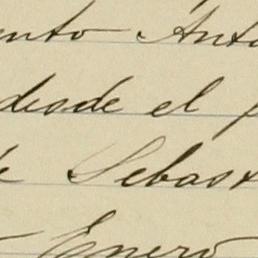 ento Anto
desde el p
de Sebast
Enero